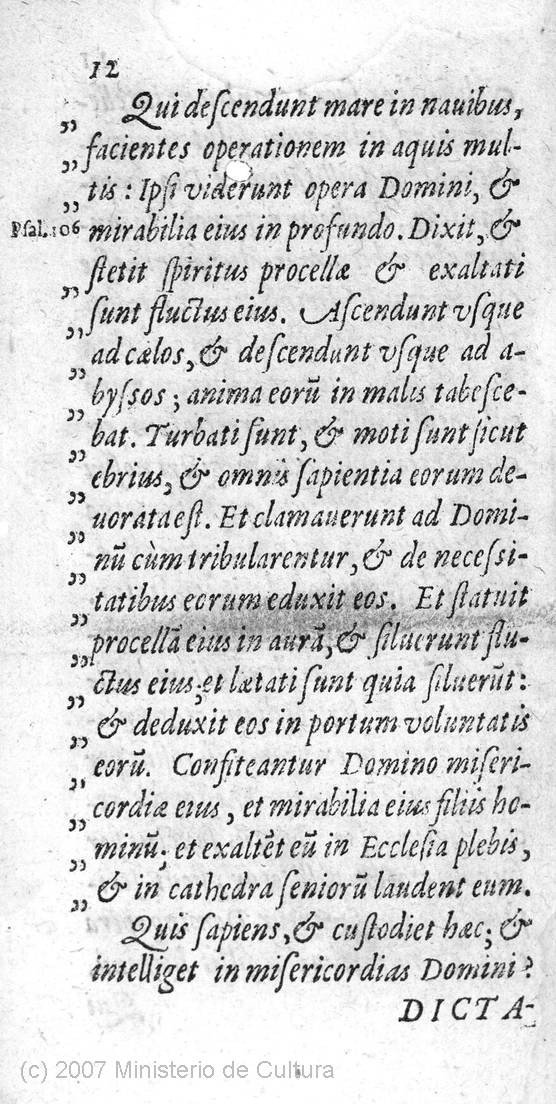 12
Qui deſcendunt mare in nauibus,
„ facientes operationem in aquis mul-
„ tis : Ipſi viderunt opera Domini, &
Pſal. 106 „ mirabilia eius in profundo. Dixit, &
ſtetit ſpiritus procellæ & exaltati
„ ſunt fluctus eius. Aſcendunt vſque
„ ad cælos, & deſcendunt vſque ad a-
„ byſsos ; anima eorũ in malis tabeſce-
„ bat. Turbati ſunt, & moti ſunt ſicut
„ ebrius, & omnis ſapientia eorum de-
„ uorata eſt. Et clamauerunt ad Domi-
„ nũ cùm tribularentur, & de neceſsi-
„ tatibus eorum eduxit eos. Et ſtatuit
„ procellã eius in aurã, & ſiluerunt flu-
„ ctus eius; et lætati ſunt quia ſiluerũt :
„ & deduxit eos in portum voluntatis
„ eorũ. Confiteantur Domino miſeri-
„ cordiæ eius, et mirabilia eius filiis ho-
„ minũ; et exaltẽt eũ in Eccleſia plebis,
„ & in cathedra ſeniorũ laudent eum.
„ Quis ſapiens, & cuſtodiet hæc; &
intelliget in miſericordias Domini?
DICTA-
(c) 2007 Ministerio de Cultura